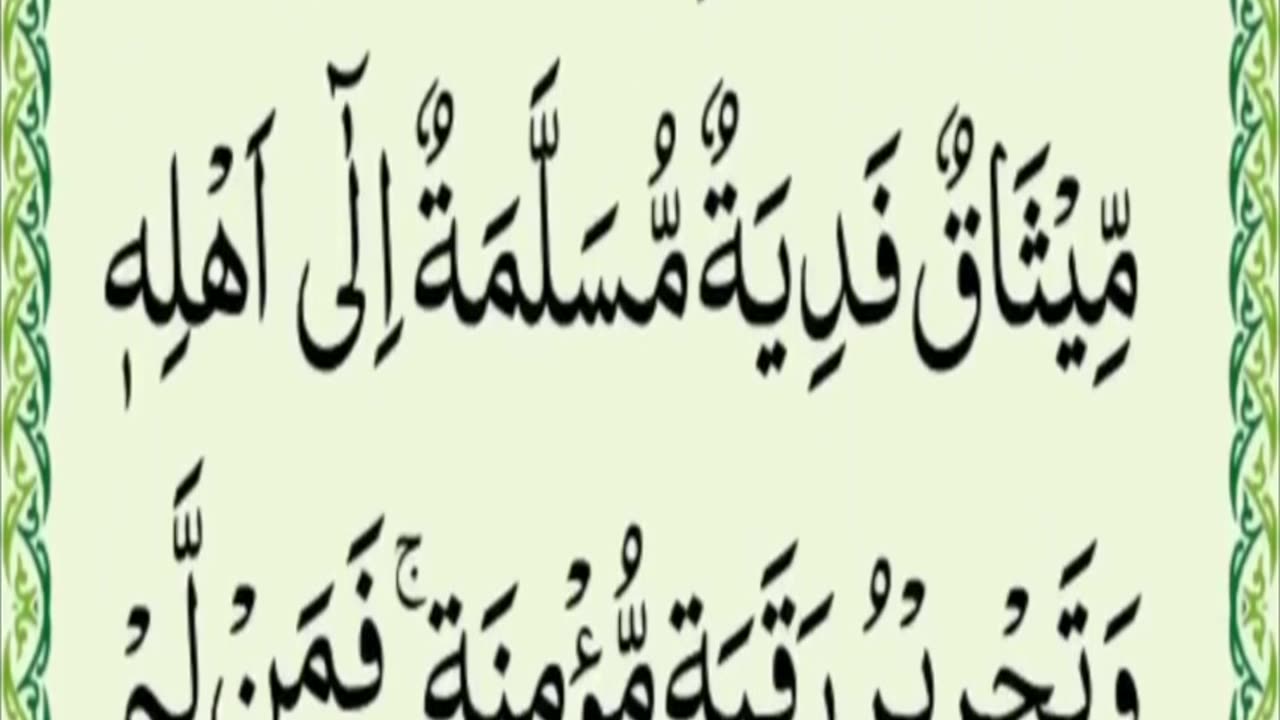 مِّيْثَاقٌ فَدِيَةٌ مُّسَلَّمَةٌ اِلٰٓى اَهْلِهٖ
وَتَحْرِيْرُ رَقَبَةٍ مُّؤْمِنَةٍ ۚ فَمَنْ لَّمْ